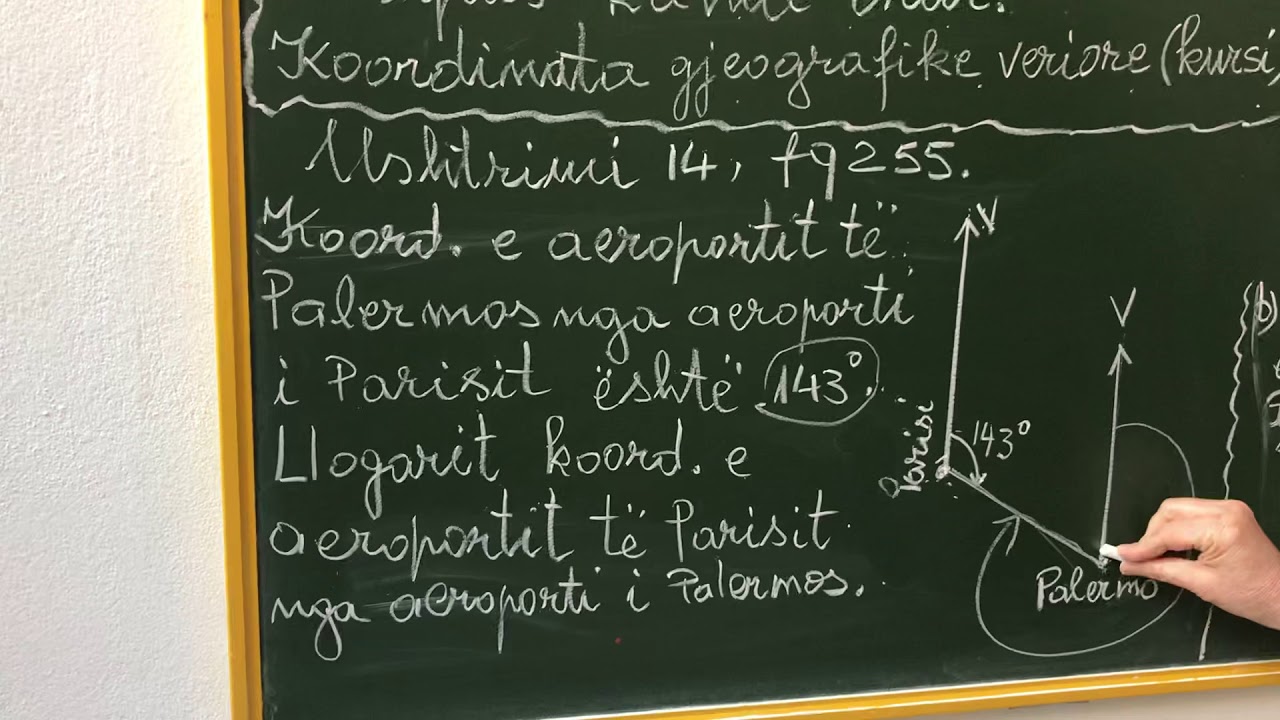 Koordinata gjeografike veriore (kursi)
Ushtrimi 14, fq 255.
Koord. e aeroportit të
Palermos nga aeroporti
i Parisit është 143°.
Llogarit koord. e
aeroportit të Parisit
nga aeroporti i Palermos.
V
Parisi
143°
V
Palermo
b)